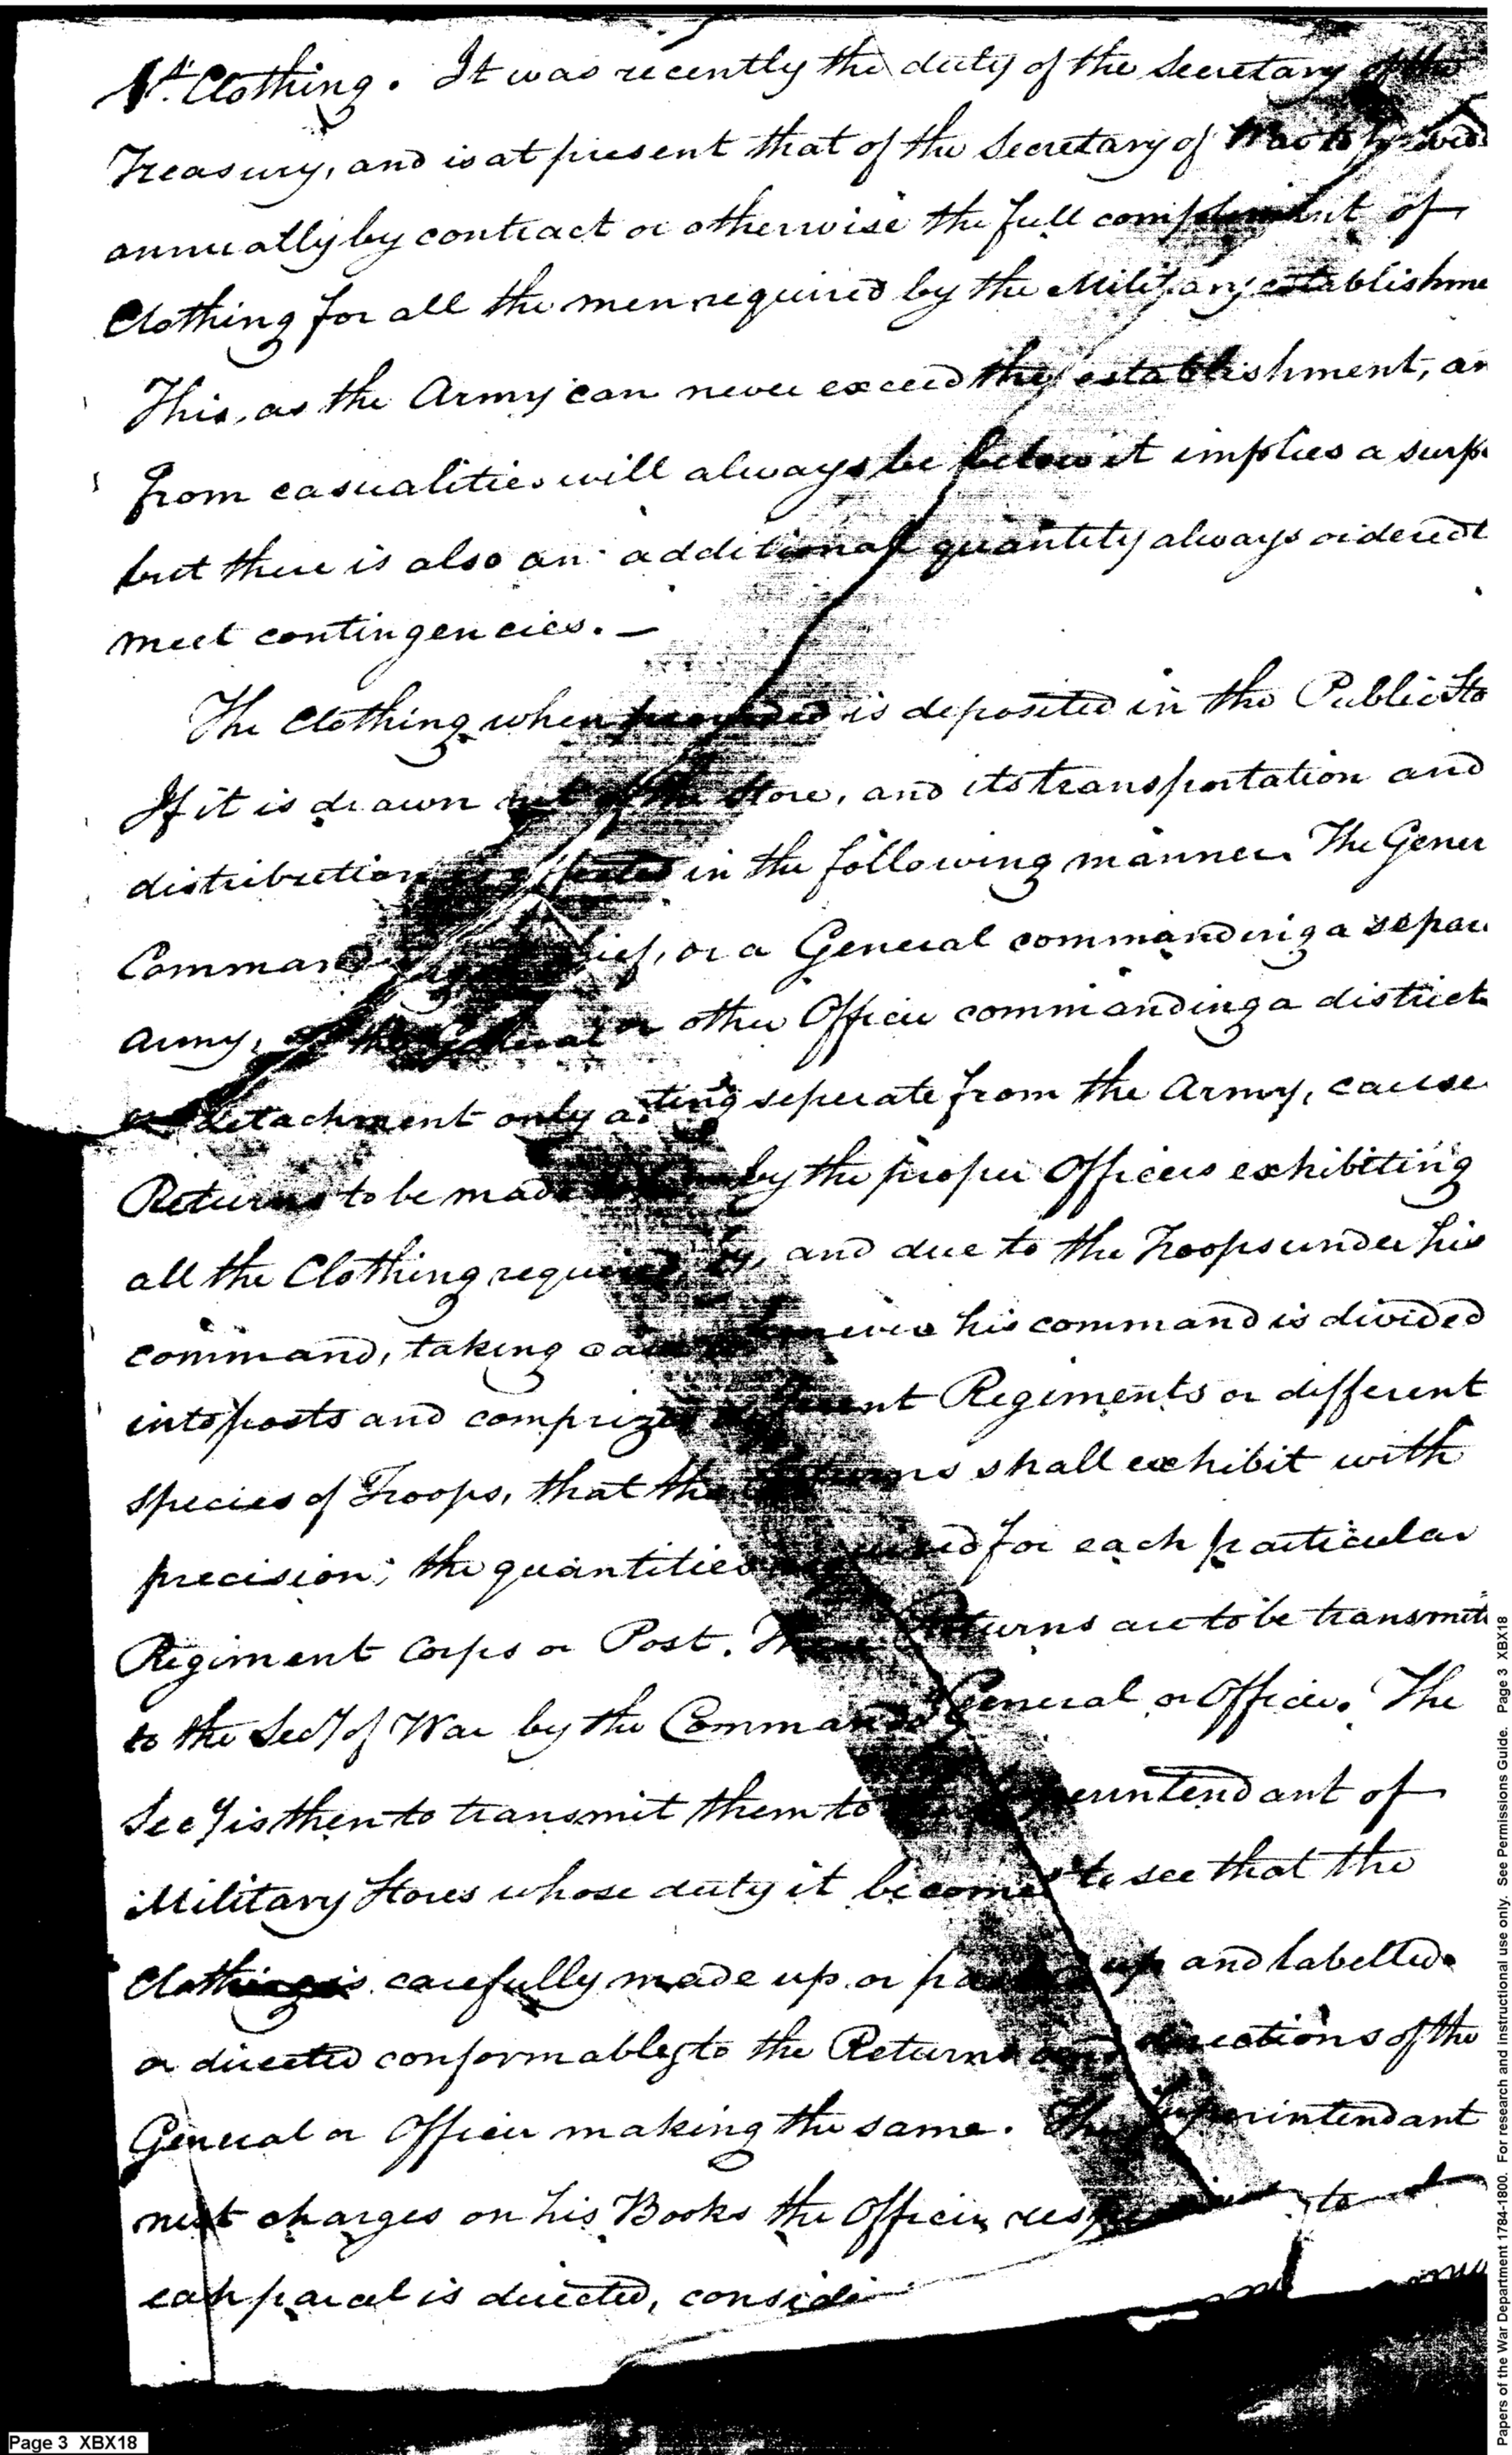 1st. Clothing. It was recently the duty of the Secretary of the
Treasury, and is at present that of the Secretary of War to
annually by contract or otherwise the full complement of
Clothing for all the men required by the Military establishme
This, as the Army can never exceed the establishment, an
from casualities will always be below it implies a surp
but there is also an additional quantity always ordered t
meet contingencies. —
The Clothing when provided is deposited in the Public Sto
If it is drawn out of the Store, and its transportation and
distribution in the following manner. The Gener
Command or a General commanding a separ
Army, or the General or other Officer commanding a district
or detachment only acting seperate from the Army, cause
Returns to be made by the proper Officers exhibiting
all the Clothing required by, and due to the Troops under his
command, taking care his command is divided
into posts and comprizes different Regiments or different
species of Troops, that the Returns shall exhibit with
precision; the quantities for each particular
Regiment Corps or Post. These Returns are to be transmit
to the Secy of War by the Commandg General or Officer. The
Secy is then to transmit them to Superintendant of
Military Stores whose duty it becomes to see that the
Clothing is carefully made up or packed up and labelled
or directed conformably to the Returns and directions of the
General or Officer making the same. The Superintendant
next charges on his Books the Officer, to
each parcel is directed, conside
Page 3 XBX18
Papers of the War Department 1784-1800. For research and instructional use only. See Permissions Guide. Page 3 XBX18